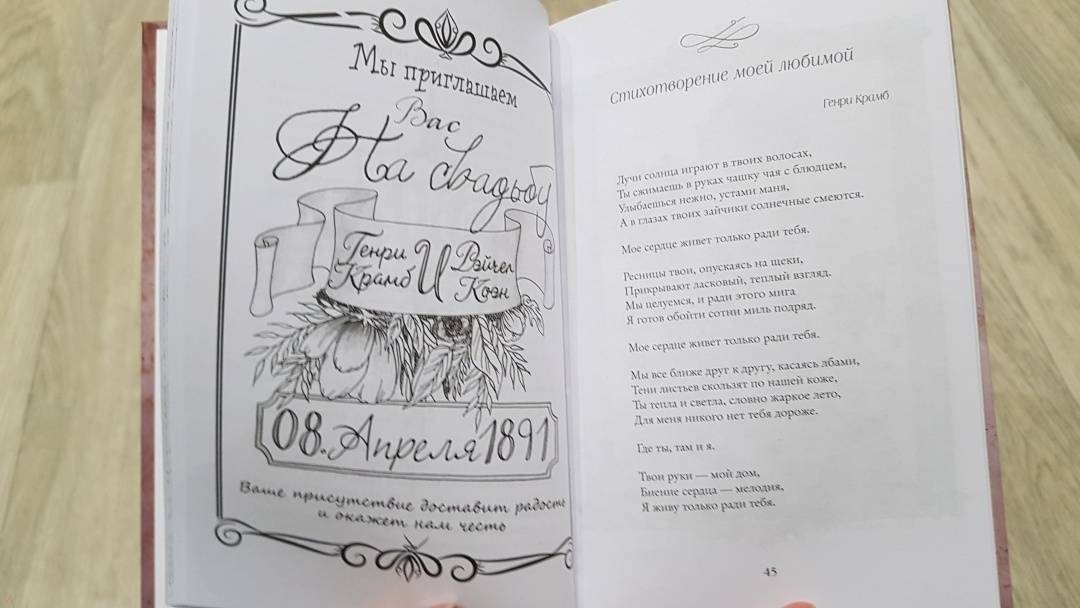 Мы приглашаем
Вас
На свадьбу
Генри
Крамб
И
Рэйчел
Коэн
08. Апреля 1891
Ваше присутствие доставит радость
и окажет нам честь
Стихотворение моей любимой
Генри Крамб
Лучи солнца играют в твоих волосах,
Ты сжимаешь в руках чашку чая с блюдцем,
Улыбаешься нежно, устами маня,
А в глазах твоих зайчики солнечные смеются.
Мое сердце живет только ради тебя.
Ресницы твои, опускаясь на щеки,
Прикрывают ласковый, теплый взгляд.
Мы целуемся, и ради этого мига
Я готов обойти сотни миль подряд.
Мое сердце живет только ради тебя.
Мы все ближе друг к другу, касаясь лбами,
Тени листьев скользят по нашей коже,
Ты тепла и светла, словно жаркое лето,
Для меня никого нет тебя дороже.
Где ты, там и я.
Твои руки — мой дом,
Биение сердца — мелодия,
Я живу только ради тебя.
45